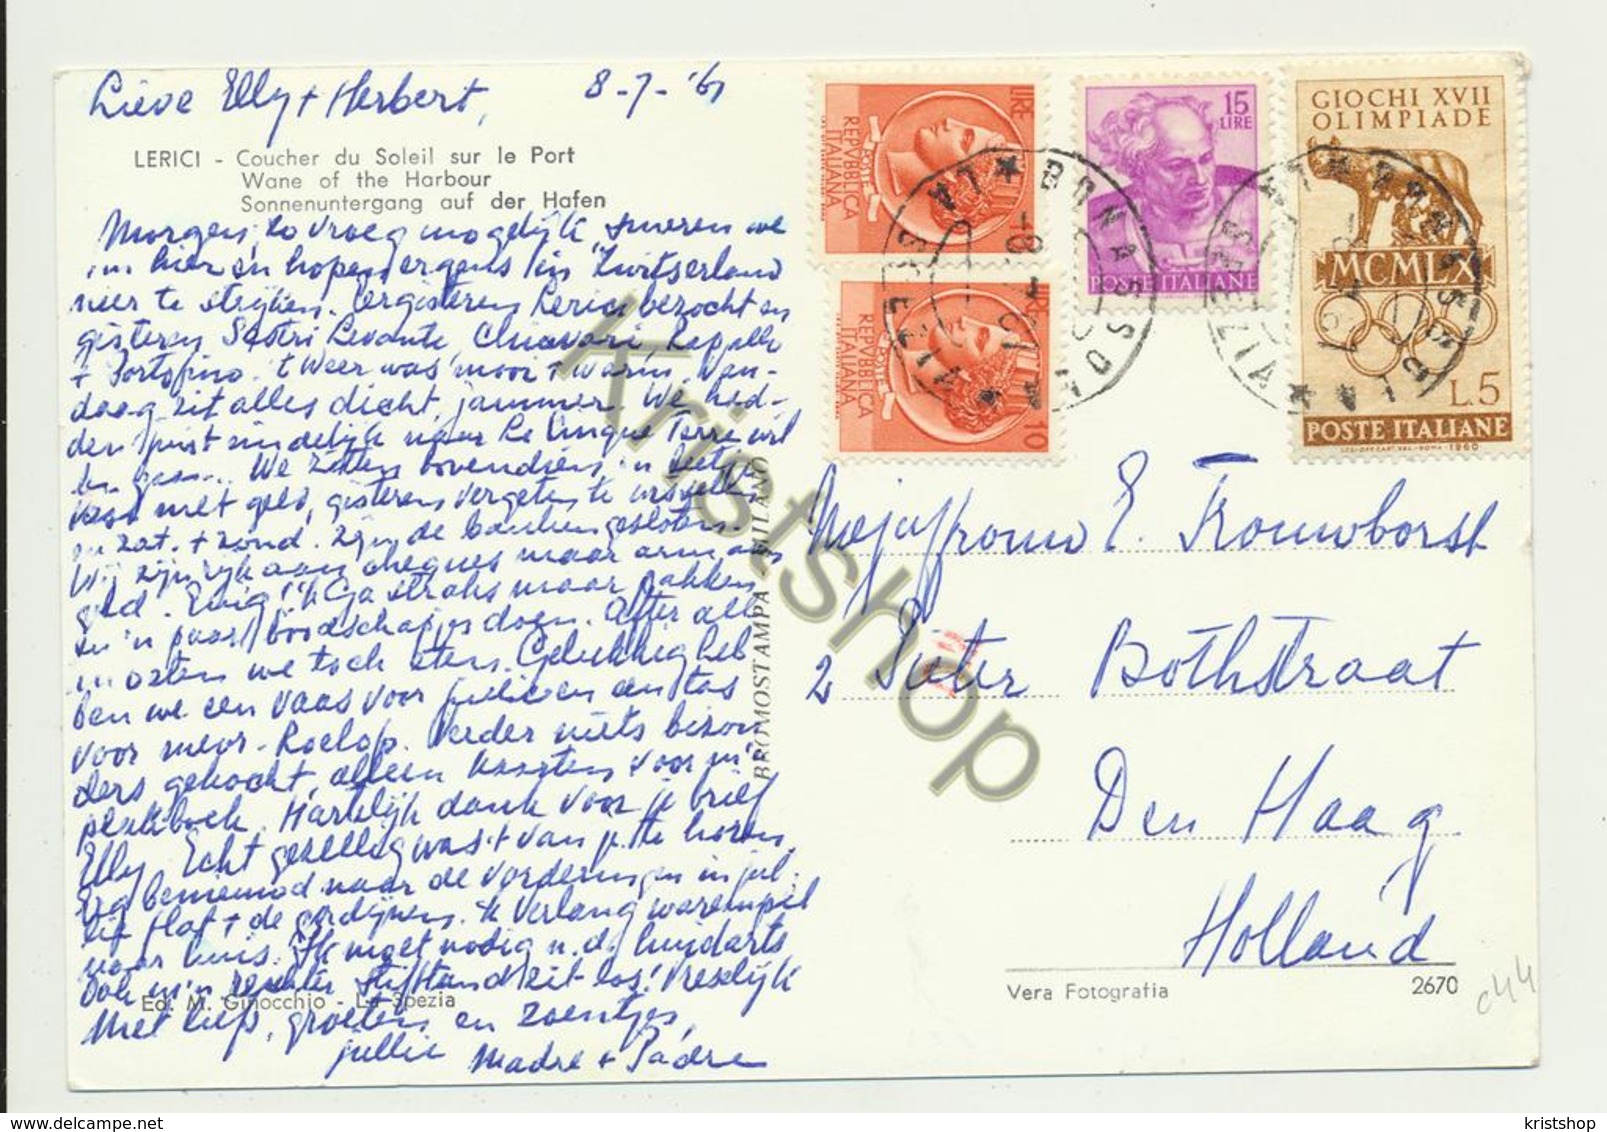 Lieve Elly + Herbert, 8-7-'61
LERICI - Coucher du Soleil sur le Port
Wane of the Harbour
Sonnenuntergang auf der Hafen
Morgen, zo vroeg mogelijk, smeren we
'm hier en hopen ergens in Zwitserland
neer te strijken. Eergisteren Lerici bezocht en
gisteren Sestri Levante Chiavari, Rapallo
+ Portofino. 't Weer was mooi + warm. Van-
daag zit alles dicht, jammer. We had-
den juist eindelijk naar Le Cinque Terre wil
len gaan. We zitten bovendien in
met geld, gisteren vergeten te wisselen
en zat. + zond. zijn de banken gesloten.
Wij zijn rijk aan cheques maar arm aan
geld. Enig! 'k Ga straks maar pakken
en 'n paar boodschapjes doen. After all
moeten we toch eten. Gelukkig heb
ben we een vaas voor jullie en een tas
voor mevr. Roelop. Verder niets bizon
ders gekocht, alleen kaarten voor m'n
plakboek. Hartelijk dank voor je brief
Elly. Echt gezellig was 't van je te horen.
Erg benieuwd naar de vorderingen in jul
lie flat + de gordijnen. 'k Verlang warempel
naar huis. Ik moet nodig n.d. huidarts
ook m'n rechter stifttand zit los! Vreselijk
Ed. M. Ginocchio - La Spezia
Met liefs, groeten en zoentjes,
jullie Madre + Padre
BROMOSTAMPA MILANO
LIRE
REPVBBLICA
ITALIANA
POSTE
LIRE
10
REPVBBLICA
ITALIANA
POSTE
15
LIRE
POSTE ITALIANE
GIOCHI XVII
OLIMPIADE
MCMLX
L.5
POSTE ITALIANE
1960
Mejuffrouw E. Trouwborst
2 Pieter Bothstraat
Den Haag
Holland
Vera Fotografia 2670
c44
Kristshop
www.delcampe.net kristshop